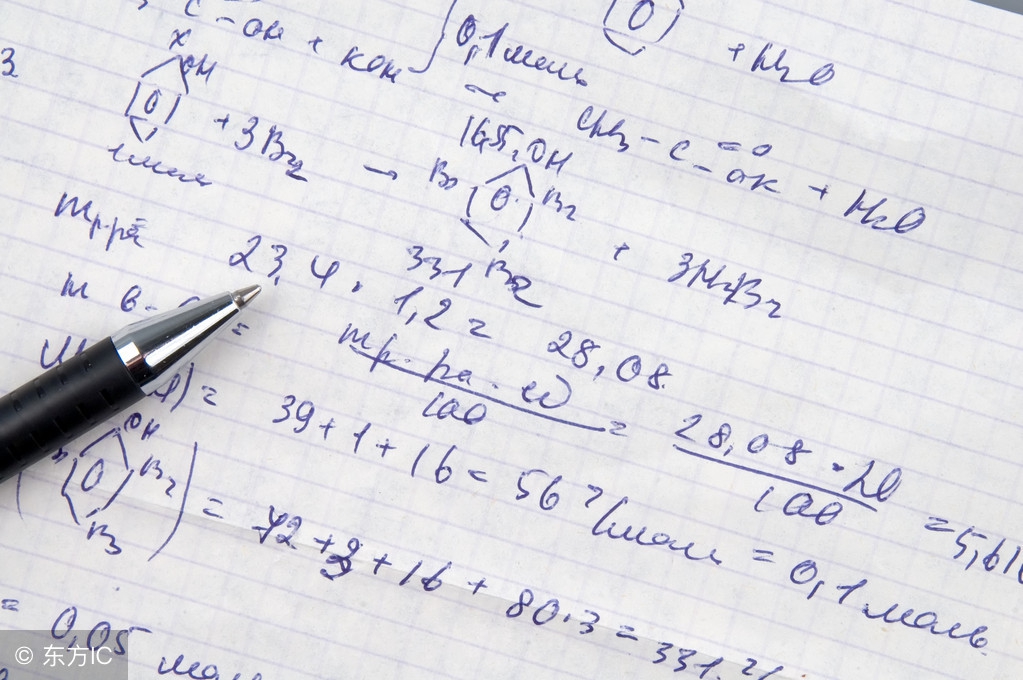 C - OH + KOH } 0,1 моль + H2O
3. x OH
+ 3Br2 → 16,5 OH CH3 - C = O - OK + H2O
1 моль Br Br
mр-ра 331 Br + 3HBr
23,4 · 1,2 = 28,08
m в-
mр-ра · ω / 100 = 28,08 · 20 / 100 = 5,616
= 39 + 1 + 16 = 56 г/моль = 0,1 моль
OH Br Br
= 72 + 3 + 16 + 80·3 = 331 г/
= 0,05 моль
© 东方IC